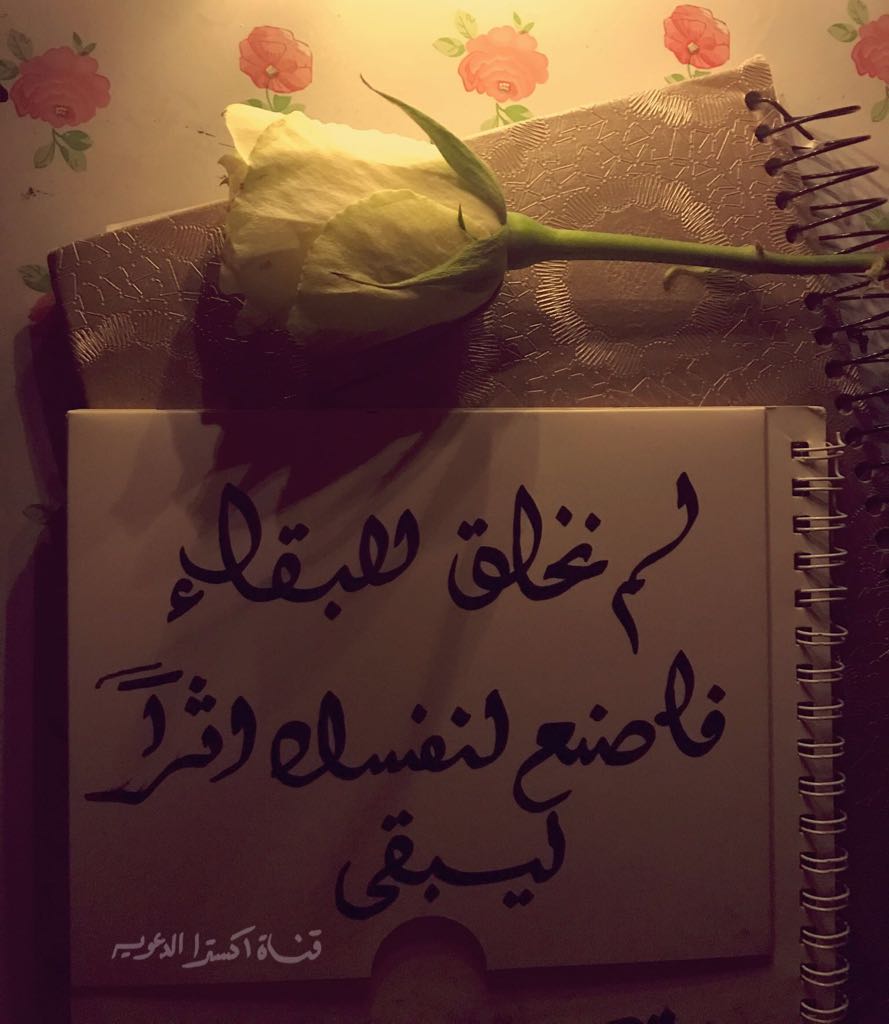 لم نخلق للبقاء
فاصنع لنفسك اثراً
ليبقى
قناة اكسترا الدعويه